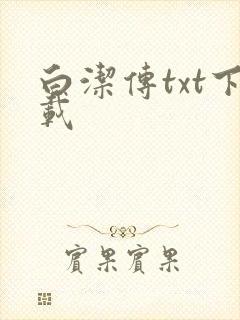 白潔傳txt下
載
實果實果